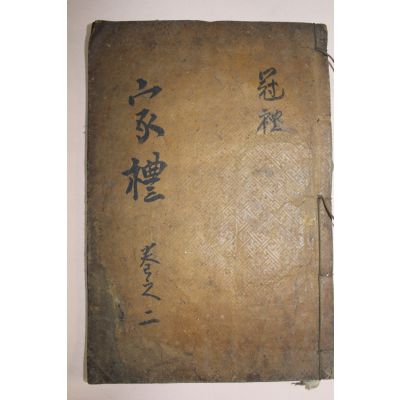 冠禮
家禮 卷之二